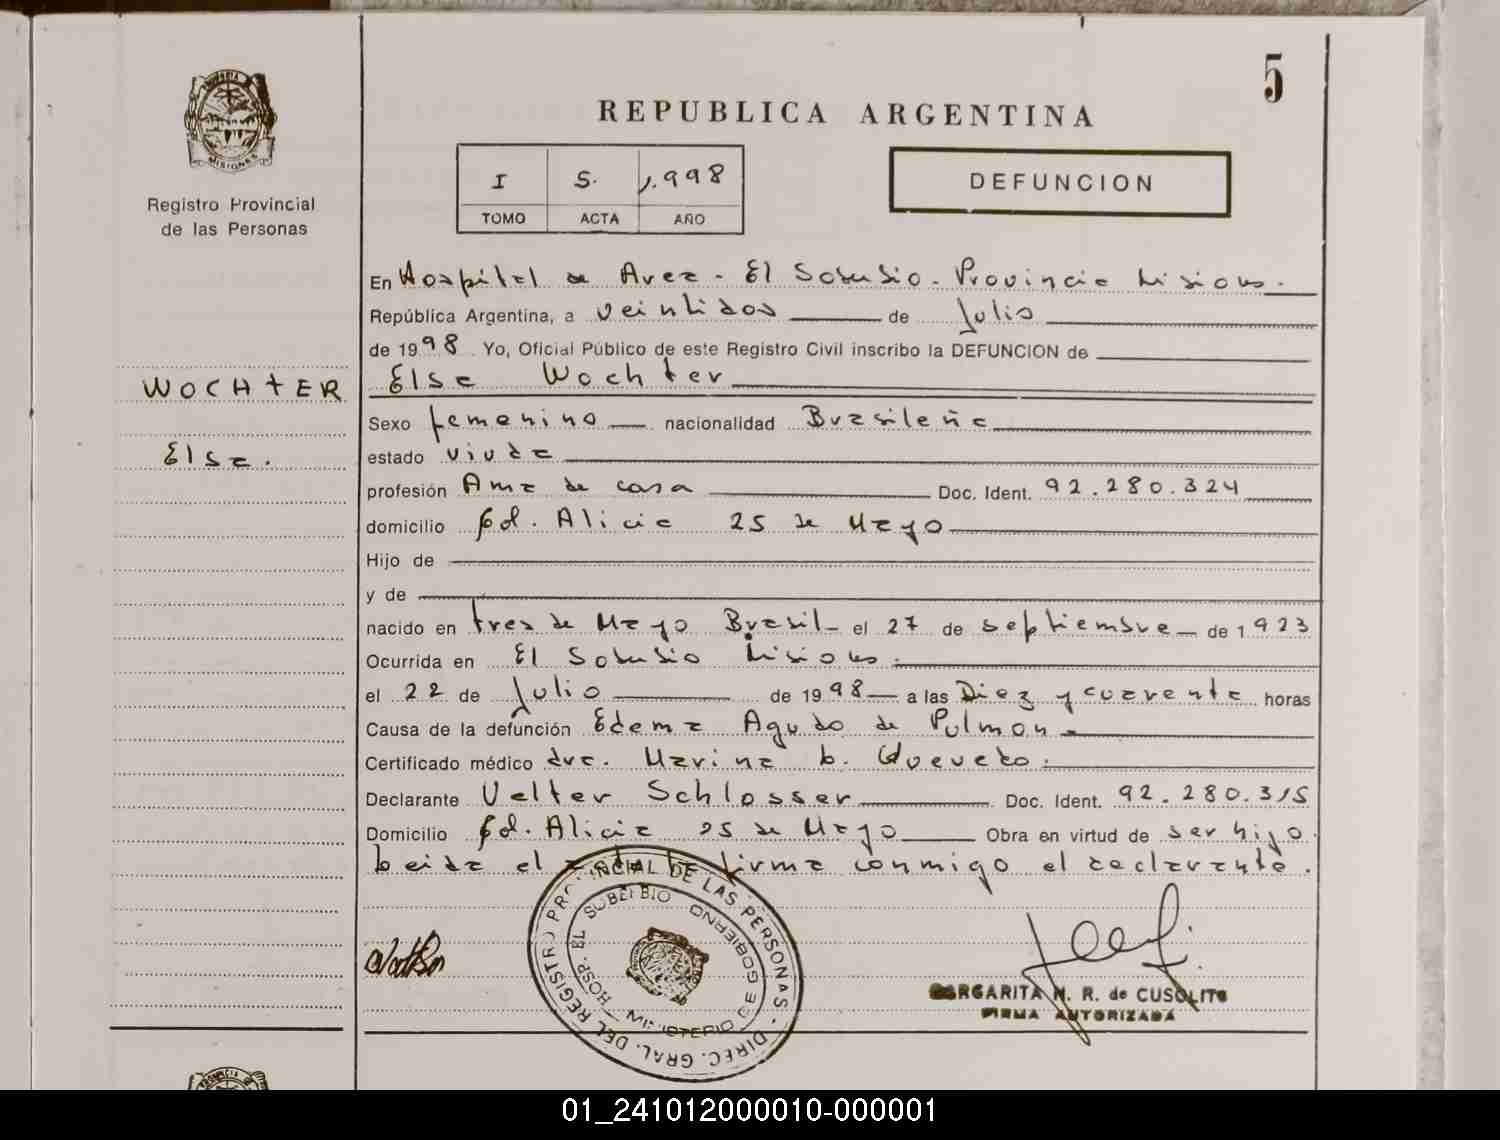 5
REPUBLICA ARGENTINA
PROVINCIA DE
MISIONES
Registro Provincial
de las Personas
I S. 1.998
TOMO ACTA AÑO
DEFUNCION
En Hospital de Area - El Soberbio - Provincia Misiones.
República Argentina, a veintidos de Julio
de 1998. Yo, Oficial Público de este Registro Civil inscribo la DEFUNCION de
WOCHTER
Elsa Wochter
Sexo femenino nacionalidad Brasileña
Elsa.
estado viuda
profesión Ama de casa Doc. Ident. 92.280.324
domicilio Col. Alicia 25 de Mayo
Hijo de
y de
nacido en tres de Mayo Brasil - el 27 de septiembre de 1923
Ocurrida en El Soberbio Misiones.
el 22 de Julio de 1998 a las Diez y cuarenta horas
Causa de la defunción Edema Agudo de Pulmon
Certificado médico dra. Marina
Declarante Velter Schlosser Doc. Ident. 92.280.315
Domicilio Col. Alicia 25 de Mayo Obra en virtud de ser hijo.
Leida el acta la firma conmigo el declarante.
DIREC. GRAL. DEL REGISTRO PROVINCIAL DE LAS PERSONAS
HOSP. EL SOBERBIO
MINISTERIO DE GOBIERNO
MARGARITA N. R. de CUSOLITO
FIRMA AUTORIZADA
01_241012000010-000001